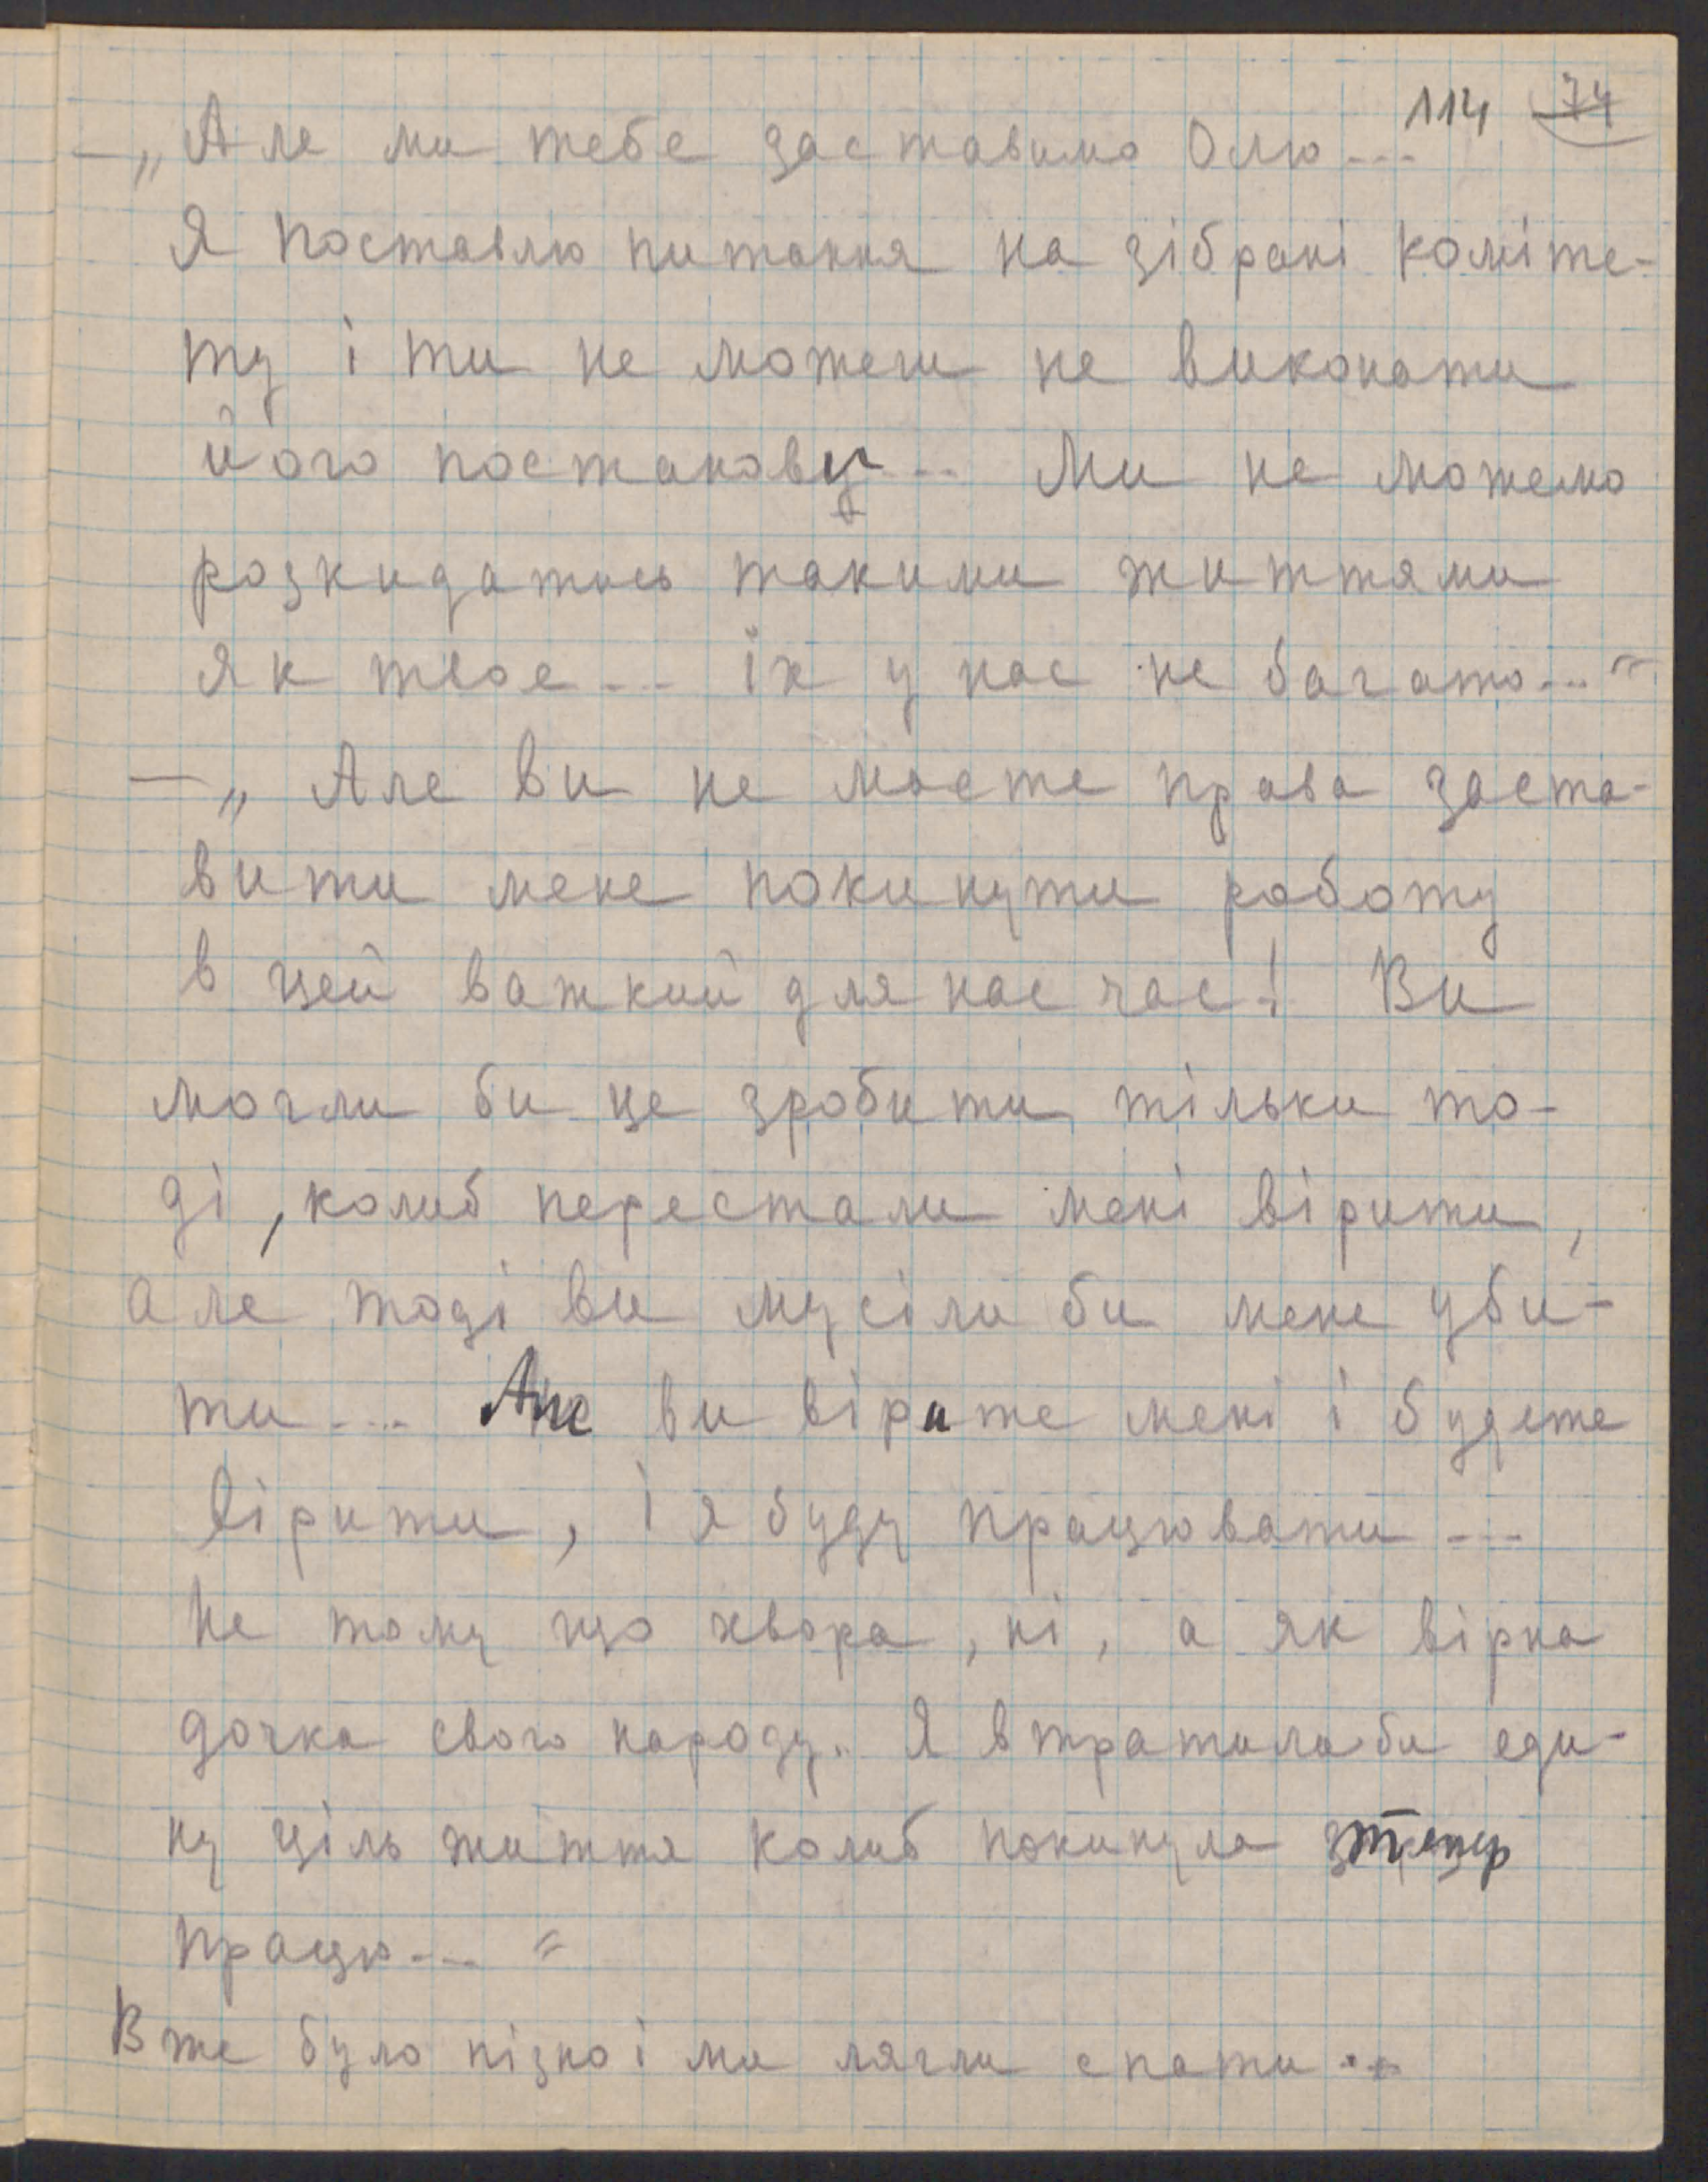 114 74
— „Але ми тебе заставимо Олю...
Я поставлю питання на зібрані коміте-
ту і ти не можеш не виконати
його постанову... Ми не можемо
розкидатись такими життями
як твое... їх у нас не багато..."
— „Але ви не маєте права заста-
вити мене покинути роботу
в цей важкий для нас час! Ви
могли би це зробити тільки то-
ді, колиб перестали мені вірити,
але тоді ви мусіли би мене уби-
ти... Але ви вірите мені і будете
вірити, і я буду працювати...
Не тому що хвора, ні, а як вірна
дочка свого народу. Я втратила би еди-
ну ціль життя колиб покинула тепер
працю..."
Вже було пізно і ми лягли спати..